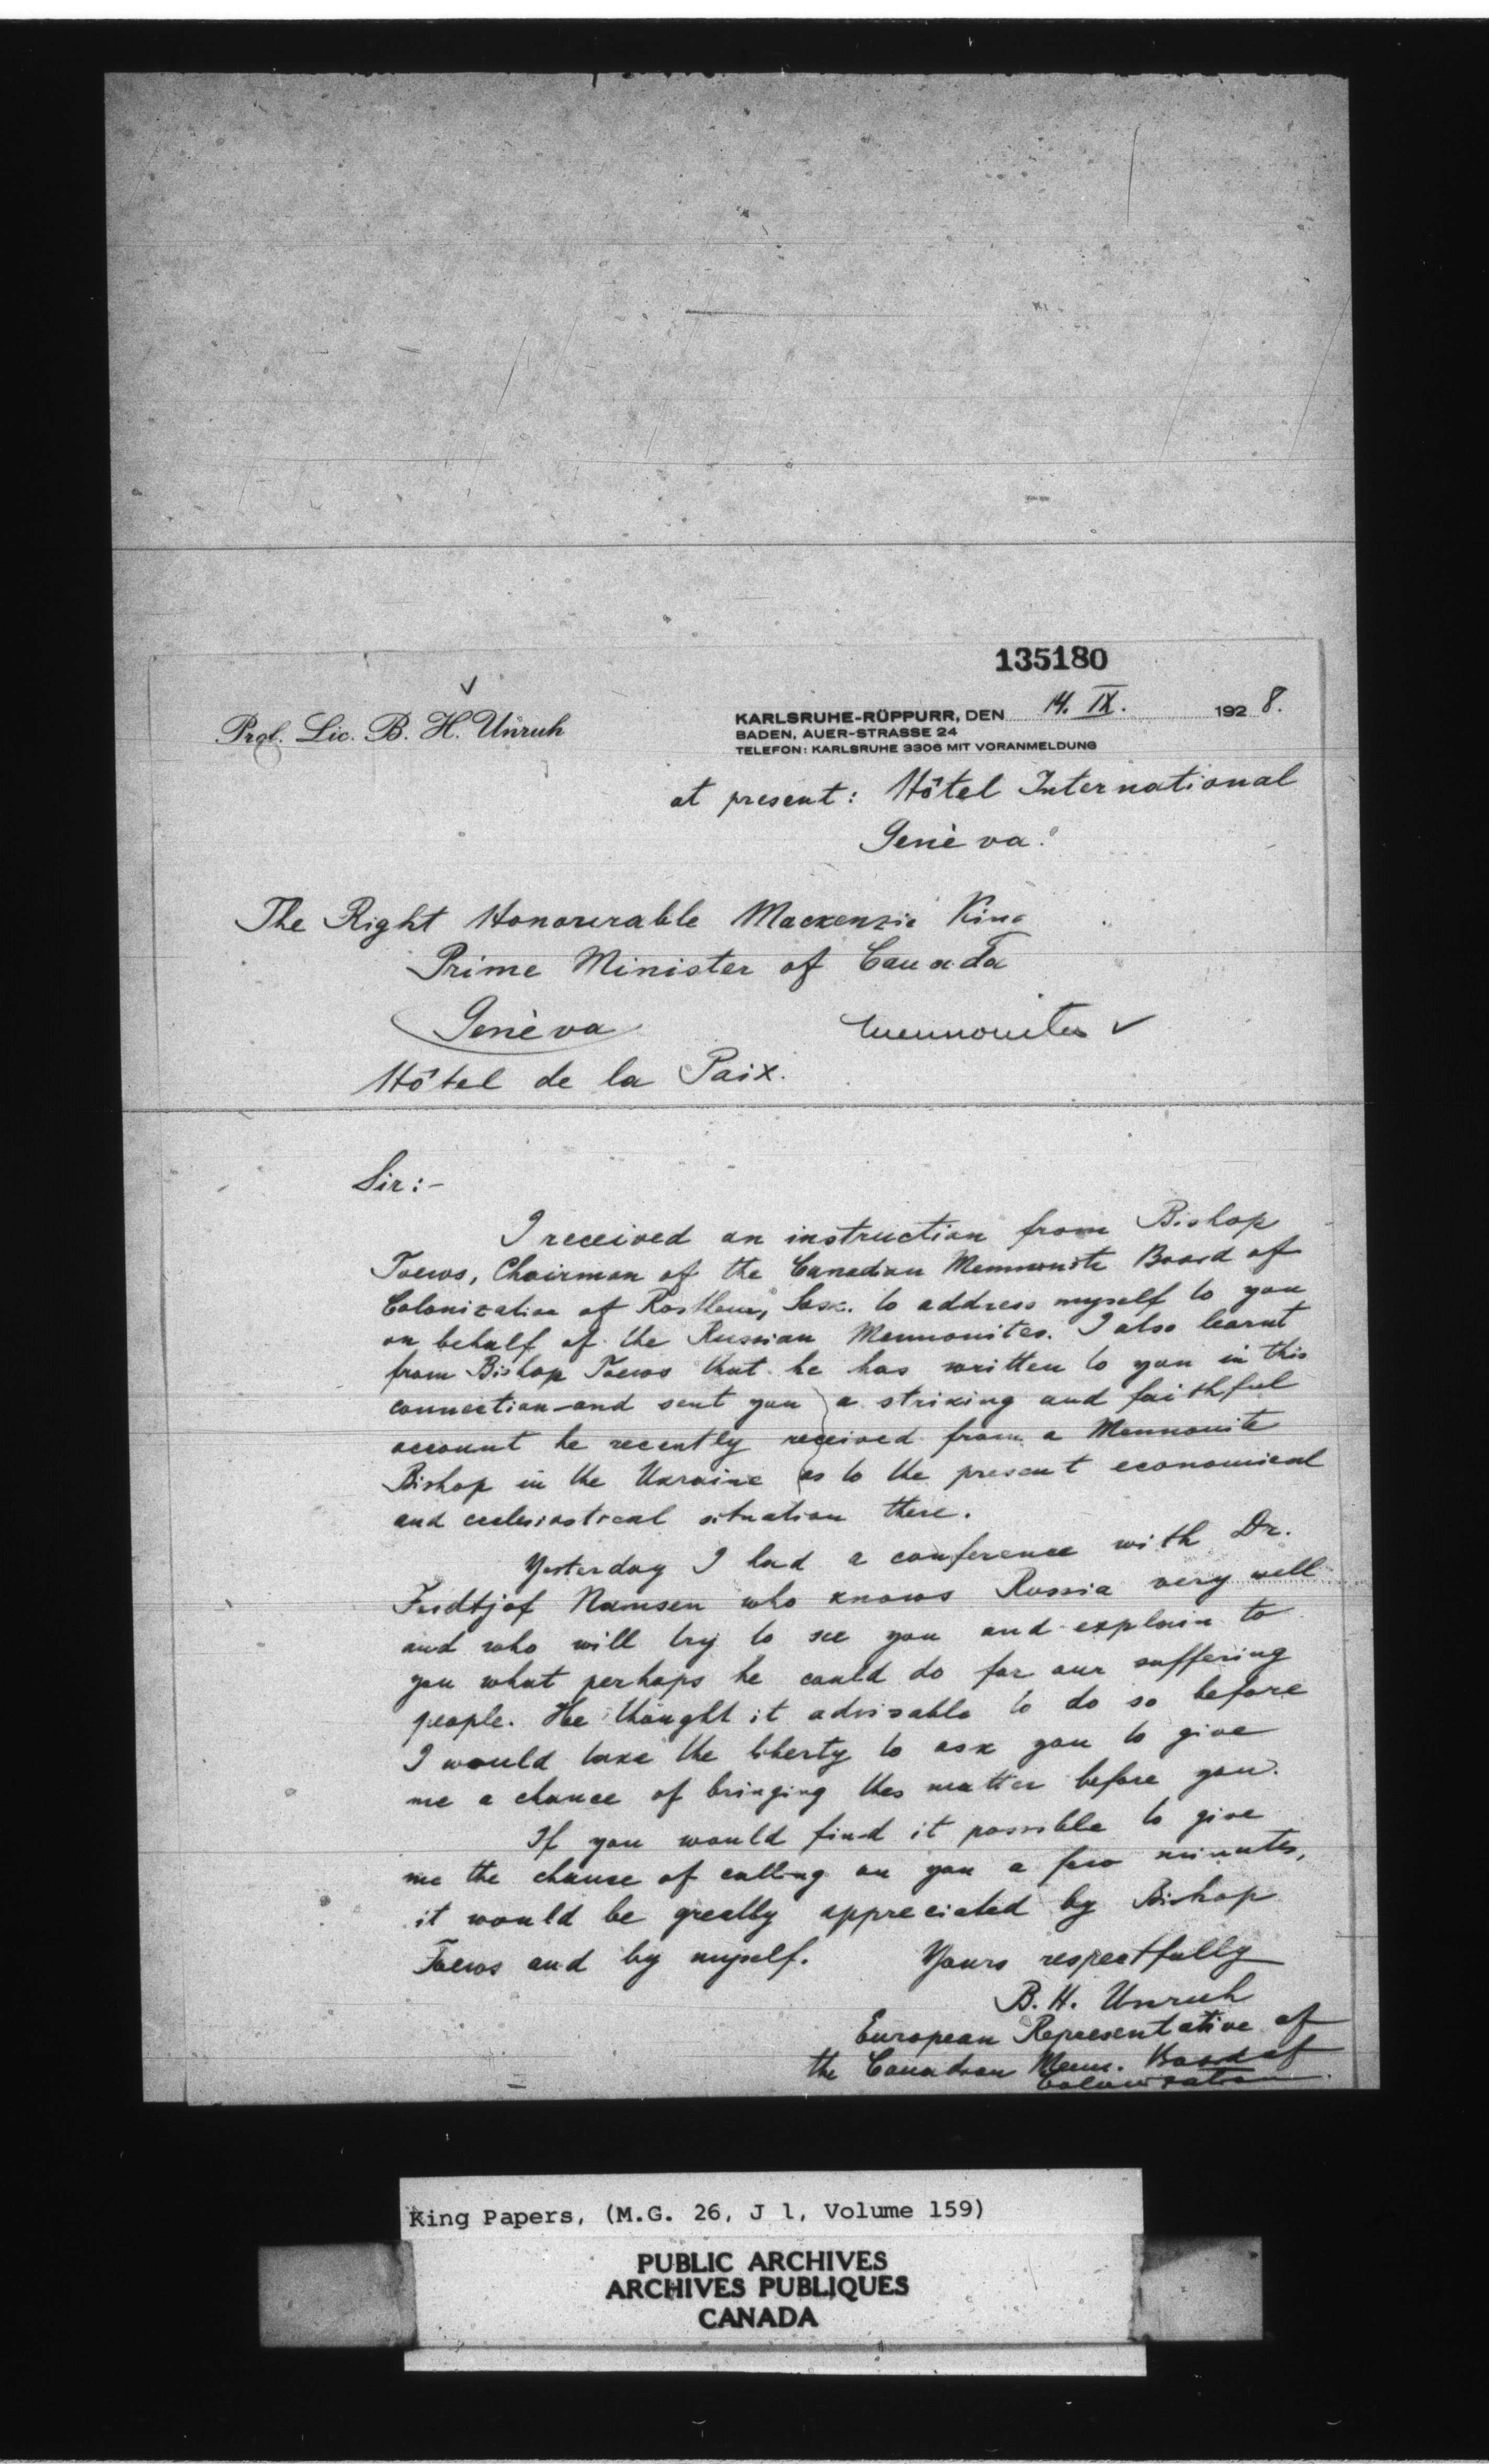 135180
Prof. Lic. B. H. Unruh
KARLSRUHE-RÜPPURR, DEN 14. IX. 1928.
BADEN, AUER-STRASSE 24
TELEFON: KARLSRUHE 3306 MIT VORANMELDUNG
at present: Hôtel International
Genèva.
The Right Honourable Mackenzie King
Prime Minister of Canada
Genèva
Mennonites ✓
Hôtel de la Paix.
Sir:-
I received an instruction from Bishop
Toews, Chairman of the Canadian Mennonite Board of
Colonization at Rosthern, Sask. to address myself to you
on behalf of the Russian Mennonites. I also learnt
from Bishop Toews that he has written to you in this
connection and sent you a striking and faithful
account he recently received from a Mennonite
Bishop in the Ukraine as to the present economical
and ecclesiastical situation there.
Yesterday I had a conference with Dr.
Fridtjof Nansen who knows Russia very well
and who will try to see you and explain to
you what perhaps he could do for our suffering
people. He thought it advisable to do so before
I would take the liberty to ask you to give
me a chance of bringing this matter before you.
If you would find it possible to give
me the chance of calling on you a few minutes,
it would be greatly appreciated by Bishop
Toews and by myself. Yours respectfully
B. H. Unruh
European Representative of
the Canadian Menn. Board of
Colonization.
King Papers, (M.G. 26, J 1, Volume 159)
PUBLIC ARCHIVES
ARCHIVES PUBLIQUES
CANADA